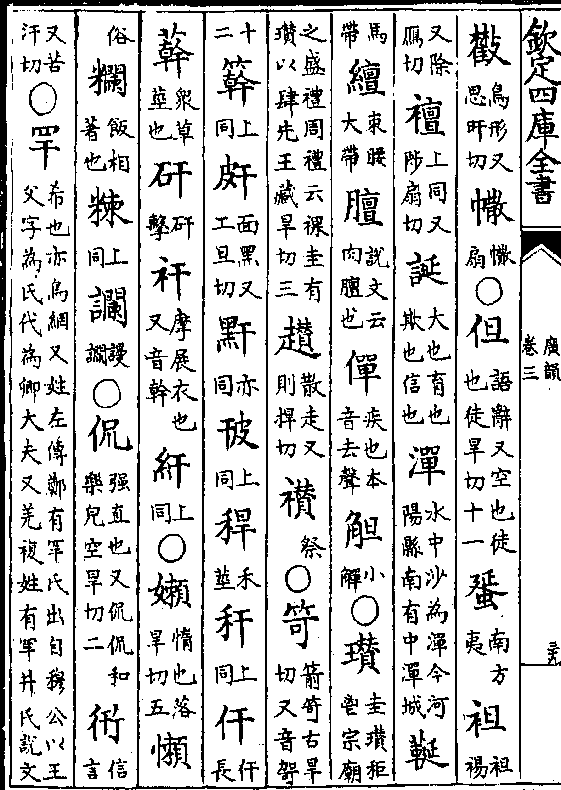 欽定四庫全書
廣韻
卷三
三九
鳥形又思旰切扇○但語辭又空也徒也徒旱切十一蜑南方夷袒袒裼
又除鴈切襢上同又陟扇切誕大也育也欺也信也潬水中沙為潬今河陽縣南有中潬城
馬帶繵束腰大帶膻說文云肉膻也僤疾也本音去聲觛小觶○瓚圭瓚秬鬯宗廟
之盛禮周禮云祼圭有瓚以肆先王藏旱切三趲散走又則捍切禶祭○笴箭笴古旱切又音哿
十二簳上同皯面黑又工旦切䵟亦同上同稈禾莖秆上同仠仠長
䕎衆草莖也矸矸擊衦摩展衣也又音幹上同○嬾惰也落旱切五懶
俗糷飯相著也上同讕謾讕○侃强直也又侃侃和樂皃空旱切二衎信言
又苦汗切○罕希也亦鳥網又姓左傳鄭有罕氏出自穆公以王父字為氏代為卿大夫又羌複姓有罕井氏說文